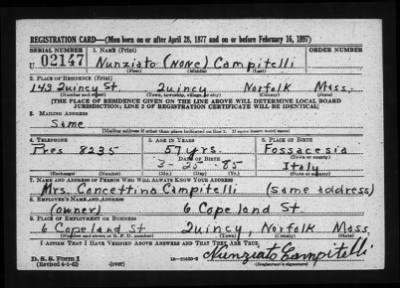 REGISTRATION CARD—(Men born on or after April 28, 1877 and on or before February 16, 1897)
SERIAL NUMBER 1. NAME (Print) ORDER NUMBER
U 02147 Nunziato (NONE) Campitelli
(First) (Middle) (Last)
2. PLACE OF RESIDENCE (Print)
143 Quincy St. Quincy Norfolk Mass.
(Number and street) (Town, township, village, or city) (County) (State)
[THE PLACE OF RESIDENCE GIVEN ON THE LINE ABOVE WILL DETERMINE LOCAL BOARD
JURISDICTION; LINE 2 OF REGISTRATION CERTIFICATE WILL BE IDENTICAL]
3. MAILING ADDRESS
Same
[Mailing address if other than place indicated on line 2. If same insert word same]
4. TELEPHONE 5. AGE IN YEARS 6. PLACE OF BIRTH
Pres 8235 57 yrs. Fossacesia
DATE OF BIRTH (Town or county)
3- 25- 85 Italy
(Mo.) (Day) (Yr.) (State or country)
7. NAME AND ADDRESS OF PERSON WHO WILL ALWAYS KNOW YOUR ADDRESS
Mrs. Concettina Campitelli (same address)
8. EMPLOYER'S NAME AND ADDRESS
(owner) 6 Copeland St.
9. PLACE OF EMPLOYMENT OR BUSINESS
6 Copeland St Quincy, Norfolk Mass.
(Number and street or R. F. D. number) (Town) (County) (State)
I AFFIRM THAT I HAVE VERIFIED ABOVE ANSWERS AND THAT THEY ARE TRUE.
D. S. S. Form 1
(Revised 4-1-42) (over) Nunziato Campitelli
(Registrant's signature)